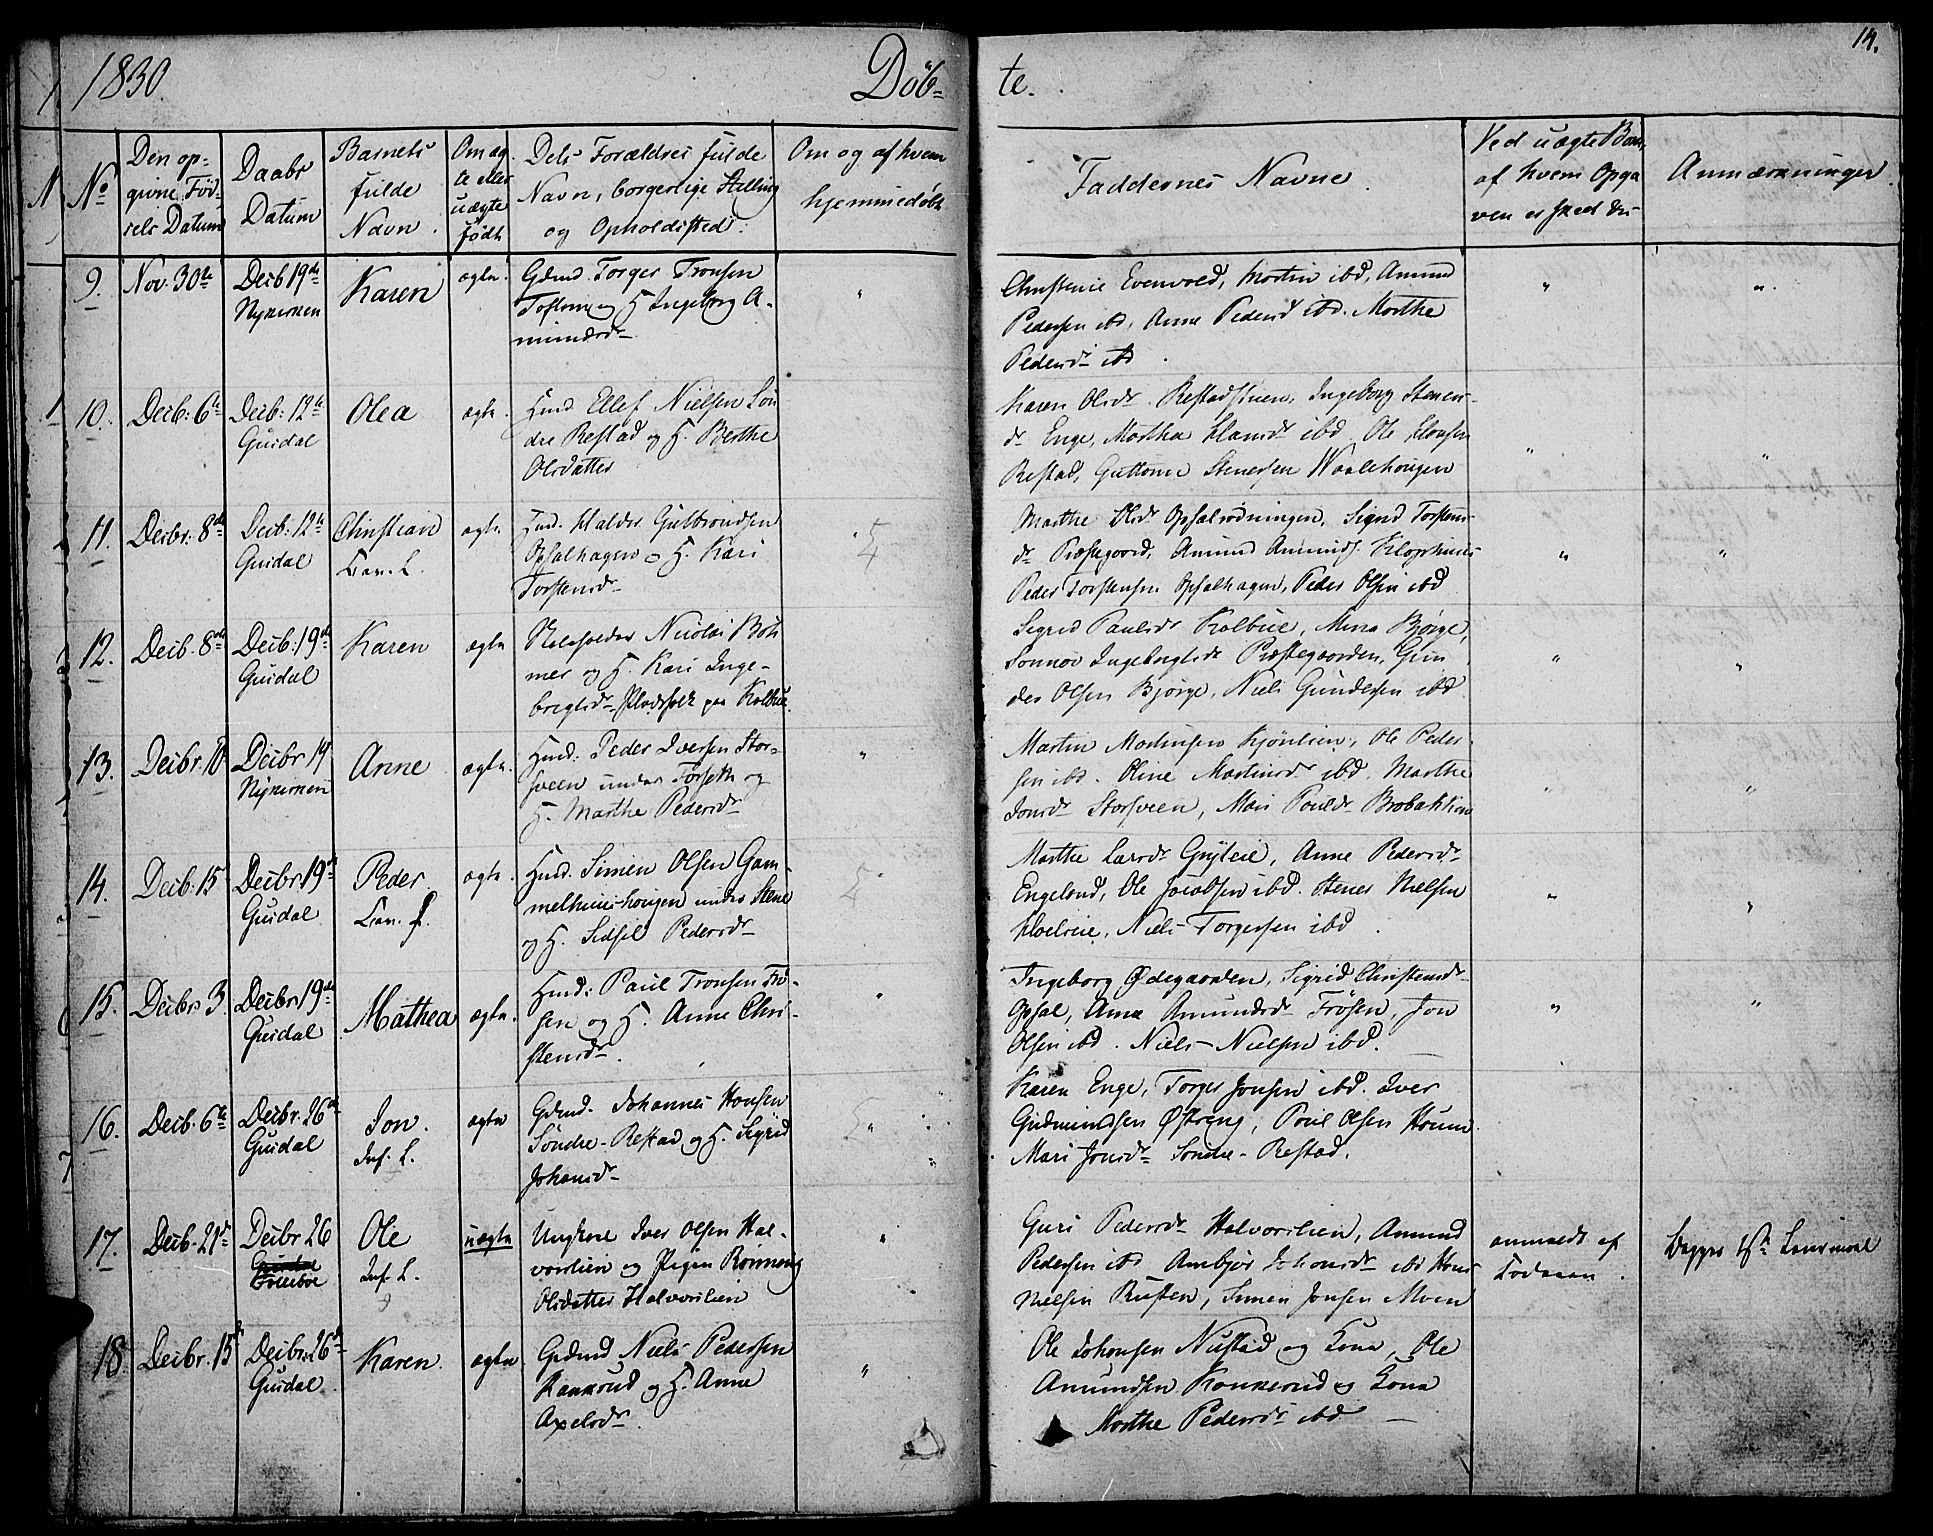 1830.
Döb-
te.
14.
No
Den op-
givne Föd-
sels Datum
Daabs
Datum
Barnets
fulde
Navn.
Om æg-
te eller
uægte
födt
Dets Forældres fulde
Navn, borgerlige Stilling
og Opholdssted.
Om og af hvem
hjemmedöbt
Faddernes Navne.
Ved uægte Börn,
af hvem Opga
ven er skeed
Anmærkninger.
9.
Nov. 30te
Decb 19de
Nykirken
Karen
ægte.
Gdmd. Torger Tronsen
Toftum og H. Ingeborg A-
mundsdr
Christense Evenvold, Martin ibd, Amund
Pedersen ibd, Anne Pedersd ibd. Marthe
Pedersdr ibd.
10.
Decb: 6te
Decb: 12te
Gusdal
Olea
ægte.
Hmd. Ellef Nielsen Sön
dre Restad og H. Berthe
Olsdatter
Karen Olsdr Restadstuen, Ingeborg Stenersdr
Enge, Marthe Hansdr ibd Ole Hansen
Restad, Guttorm Stenersen Waalehougen
11.
Decbr: 8de
Decb: 12te
Gusdal
Christian
Cam. L.
ægte
Hmd. Halder Gulbrandsen
Opsalhagen og H. Kari
Torstensdr
Marthe Olsdr Opsalrodningen, Sigrid Torstens
dr Præstegaard, Amund Amunds.
Peder Torstensen Opsalhagen, Peder Olsen ibd
12.
Decb. 8de
Decb: 19de
Gusdal
Karen
ægte
Nicolai Böh
mer og H. Kari Inge-
brigtsdr Pladsfolk paa Kolbue.
Sigrid Paulsdr Kolbue, Mina Bjørge,
Sönnov Ingebrigtsdr Præstegaarden, Gun
der Olsen Bjørge, Niels Gundersen ibd
13.
Decbr. 10
Decbr 19
Nykirken
Anne
ægte.
Hmd: Peder Iversen Stor-
sveen under Forseth og
H. Marthe Pedersdr
Martin Mortensen Kjönlien, Ole Peder
sen ibd. Oline Martinsdr ibd. Marthe
Jonsdr Storsveen, Mari Poulsdr Brobakken
14.
Decb. 15
Decbr 19de
Gusdal
Peder.
Cam. L.
ægte.
Hmd. Simen Olsen Gam-
melhuushougen under Stene
og H. Sidsil Pedersdr
Marthe Larsdr Gryteie, Anne Pedersdr
Engeland, Ole Jacobsen ibd. Stener Nielsen
Niels Torgersen ibd.
15.
Decbr 3.
Decbr 19de
Gusdal
Mathea
ægte.
Hmd: Paul Tronsen Frö-
sen og H. Anne Chri-
stensdr.
Ingeborg Ødegaarden, Sigrid Christensdr
Opsal, Anne Amundsdr Frösen, Jon
Olsen ibd. Niels Nielsen ibd.
16.
Decb. 6te
Decbr. 26de
Gusdal
Jon.
Inf. L.
ægte
Gdmd. Johannes Hansen
Söndre-Restad, og H. Sigrid
Johansdr
Karen Enge, Torger Jonsen ibd. Iver
Gudmundsen Østreng, Poul Olsen Houm
Mari Jonsdr Söndre-Restad.
17.
Decb. 21de
Decbr 26
Ole
Inf. L.
uægte
Ungkarl Iver Olsen Hal-
vorslien og Pigen Rönnaug
Olsdatter Halvorslien
Guri Pedersdr Halvorslien, Amund
Pedersen ibd Ambjör Johansdr ibd Hans
Nielsen Rusten, Simen Jonsen Moen
anmeldt af
Begges 1ste Leiermaal
18
Decbr. 15de
Decbr. 26de
Gusdal
Karen.
ægte
Gdmd Niels Pedersen
Kankrud og H. Anne
Axelsdr.
Ole Johansen Nustad og Kona, Ole
Amundsen Konkerud og Kona
Marthe Pedersdr ibd